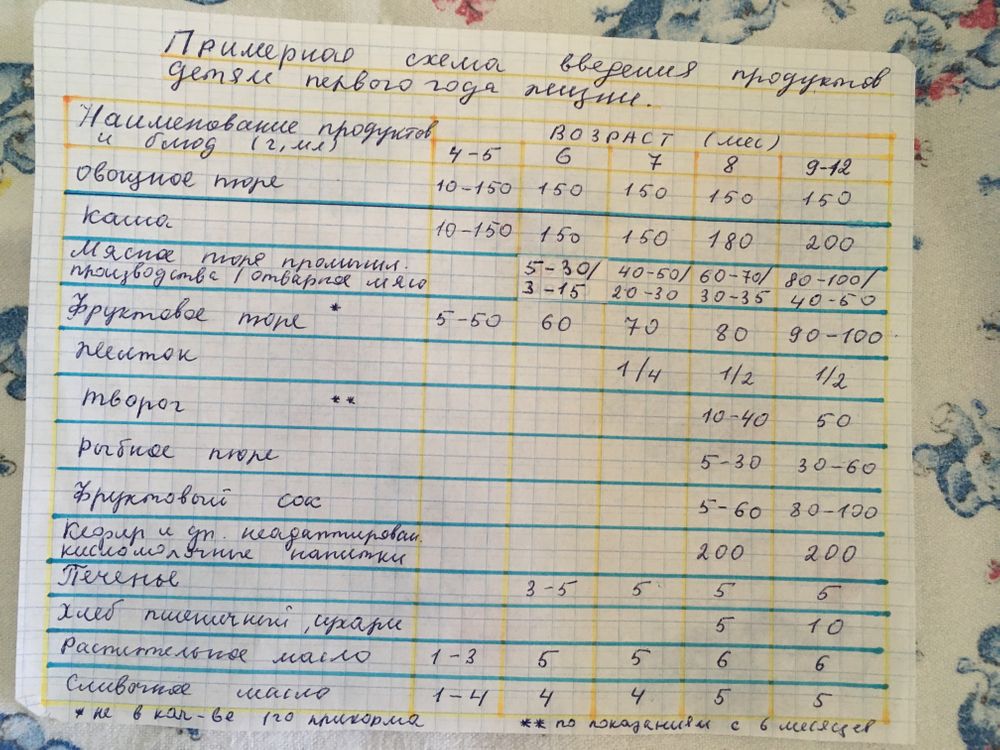 Примерная схема введения продуктов
детям первого года жизни.
Наименование продуктов
и блюд (г, мл)
ВОЗРАСТ (мес)
4-5 6 7 8 9-12
Овощное пюре 10-150 150 150 150 150
Каша 10-150 150 150 180 200
Мясное пюре промышл.
производства / отварное мясо
5-30/ 40-50/ 60-70/ 80-100/
3-15 20-30 30-35 40-50
Фруктовое пюре * 5-50 60 70 80 90-100
Желток 1/4 1/2 1/2
Творог ** 10-40 50
Рыбное пюре 5-30 30-60
Фруктовый сок 5-60 80-100
Кефир и др. неадаптирован.
кисломолочные напитки 200 200
Печенье 3-5 5 5 5
Хлеб пшеничный, сухари 5 10
Растительное масло 1-3 5 5 6 6
Сливочное масло 1-4 4 4 5 5
* не в кач-ве 1го прикорма ** по показаниям с 6 месяцев